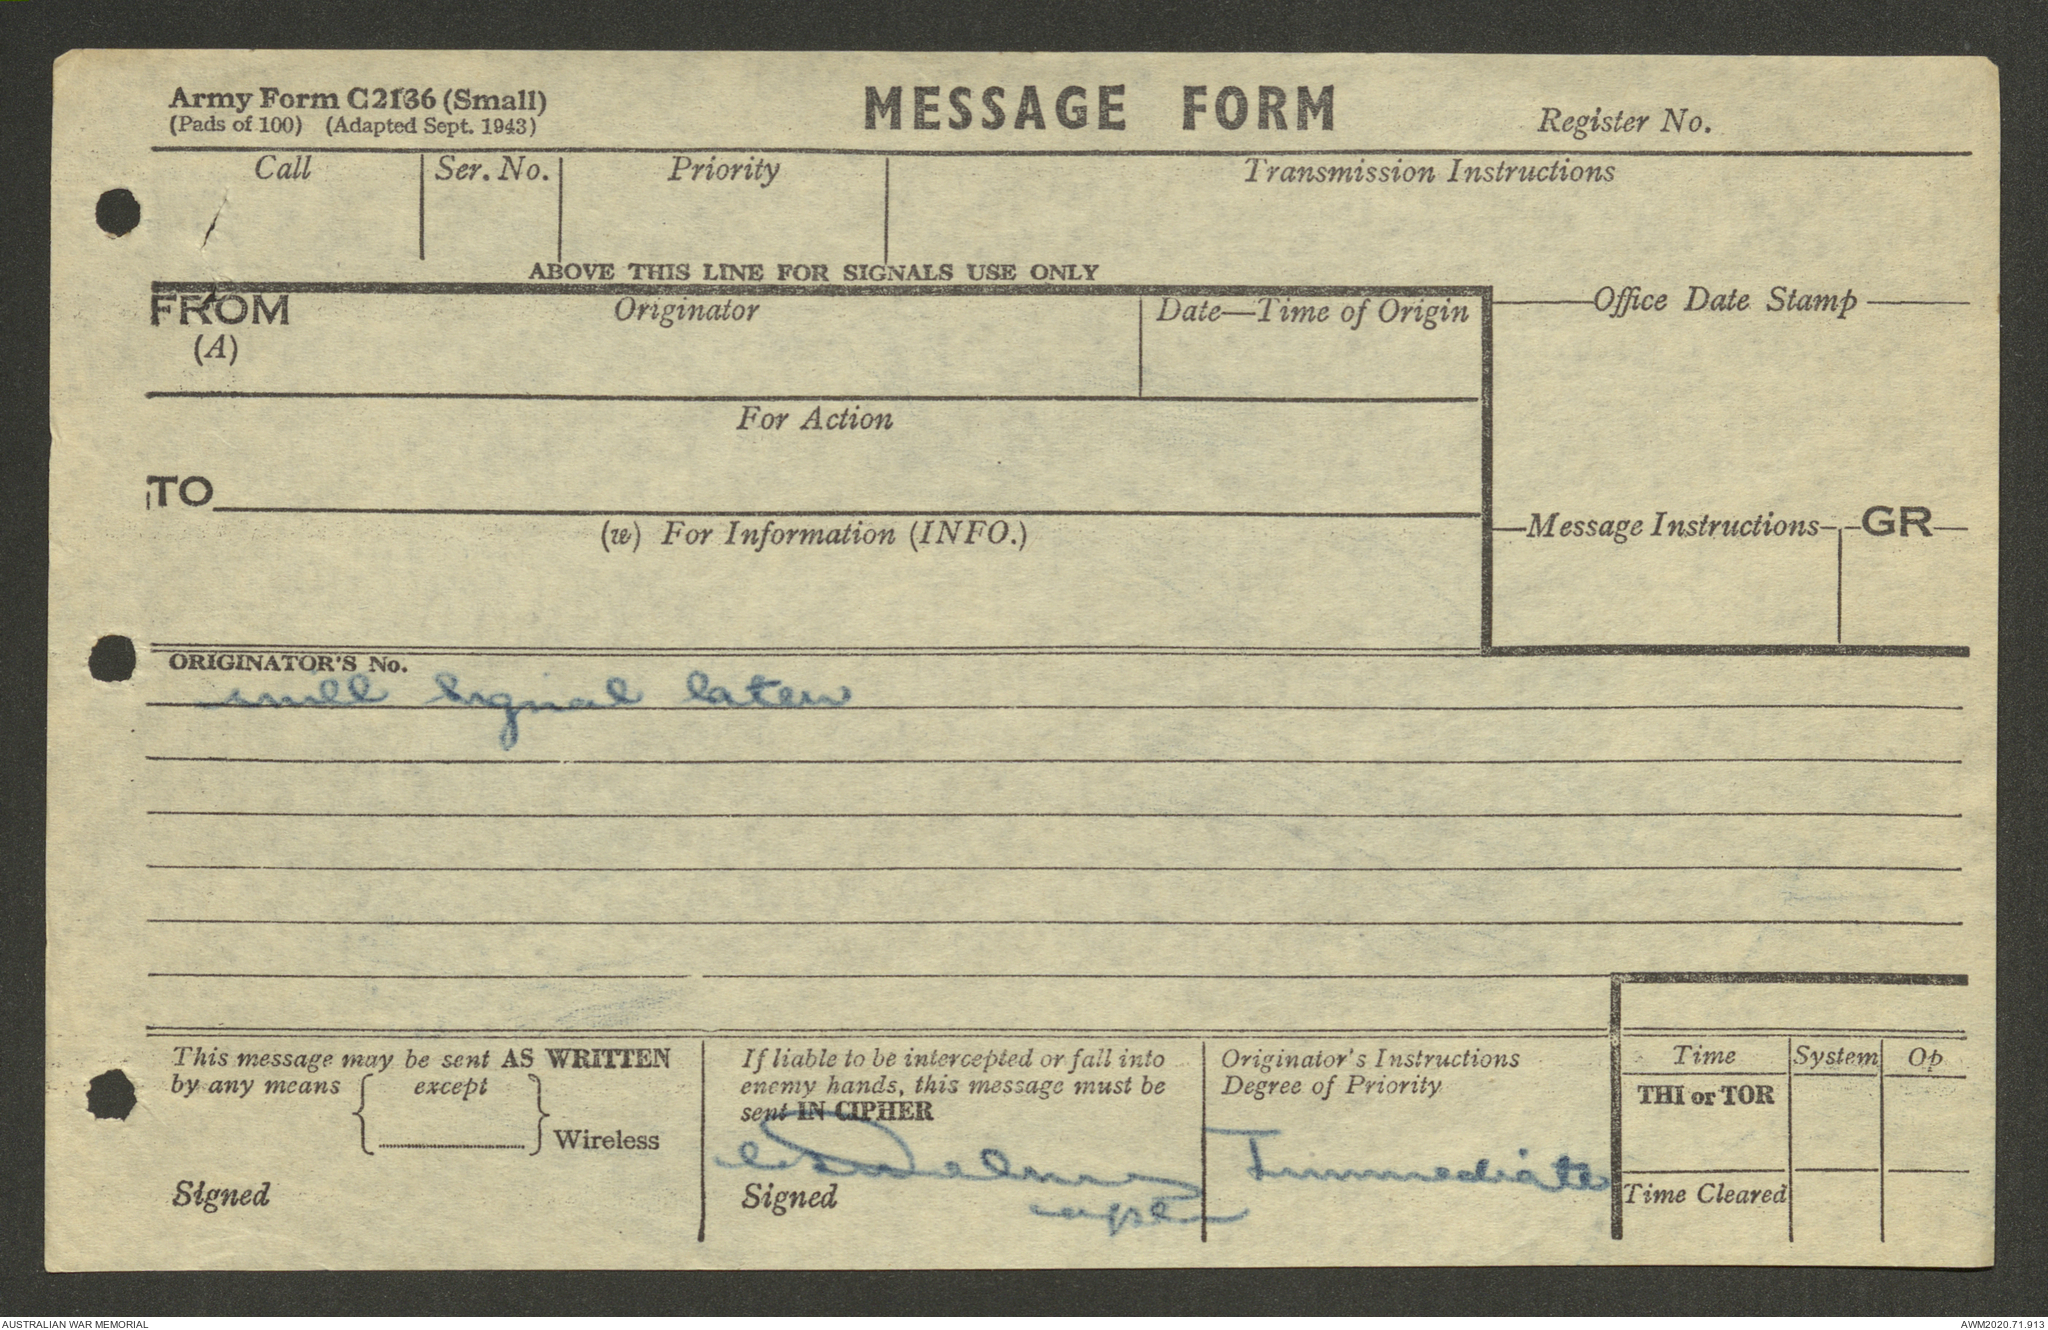 Army Form C2136 (Small)
(Pads of 100) (Adapted Sept. 1943)
MESSAGE FORM
Register No.
Call
Ser. No.
Priority
Transmission Instructions
ABOVE THIS LINE FOR SIGNALS USE ONLY
FROM
(A)
Originator
Date—Time of Origin
Office Date Stamp
For Action
TO
(w) For Information (INFO.)
Message Instructions
GR
ORIGINATOR'S No.
will signal later
This message may be sent AS WRITTEN
by any means except
Wireless
Signed
If liable to be intercepted or fall into
enemy hands, this message must be
sent IN CIPHER
Signed
capt
Originator's Instructions
Degree of Priority
Immediate
Time
System
Op
THI or TOR
Time Cleared
AUSTRALIAN WAR MEMORIAL
AWM2020.71.913